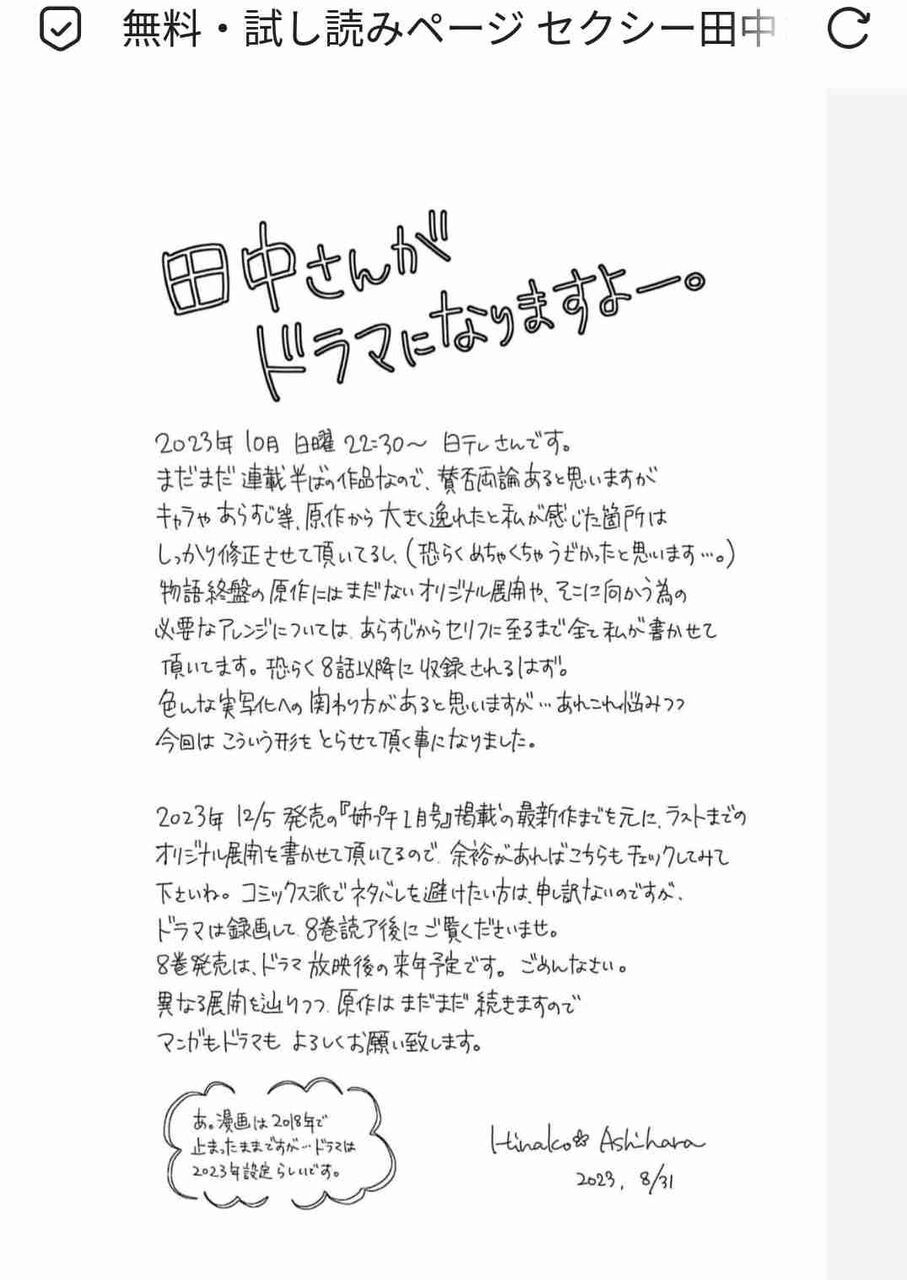 無料・試し読みページ セクシー田中
田中さんが
ドラマになりますよー。
2023年 10月 日曜 22:30〜 日テレさんです。
まだまだ 連載半ばの作品なので、賛否両論あると思いますが
キャラや あらすじ等、原作から 大きく逸れたと私が感じた箇所は
しっかり修正させて頂いてるし、(恐らく めちゃくちゃ うざかったと思います…。)
物語終盤の原作にはまだない オリジナル展開や、そこに向かう為の
必要なアレンジについては、あらすじからセリフに至るまで全て私が書かせて
頂いてます。恐らく 8話以降に 収録されるはず。
色んな実写化への関わり方があると思いますが…あれこれ悩みつつ
今回は こういう形を とらせて頂く事になりました。
2023年 12/5 発売の『姉プチ1月号』掲載の最新作までを元に、ラストまでの
オリジナル展開を書かせて頂いてるので、余裕があればこちらも チェックしてみて
下さいね。コミックス派で ネタバレを避けたい方は、申し訳ないのですが、
ドラマは録画して 8巻読了後に ご覧くださいませ。
8巻発売は、ドラマ 放映後の来年予定です。ごめんなさい。
異なる展開を辿りつつ、原作は まだまだ 続きますので
マンガもドラマも よろしくお願い致します。
あ。漫画は 2018年で
止まったままですが…ドラマは
2023年設定らしいです。
Hinako✿ Ashihara
2023, 8/31